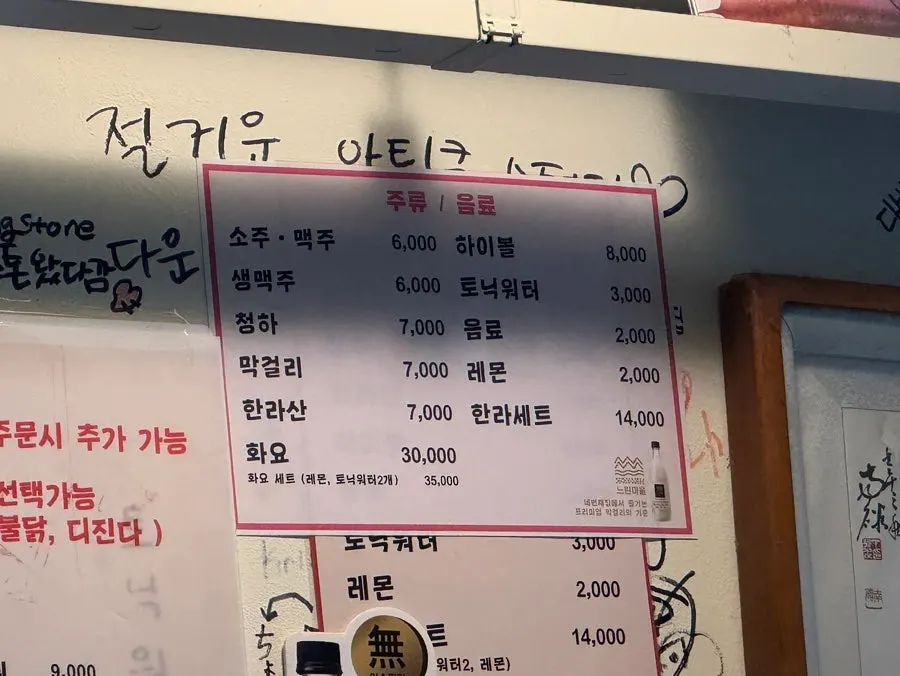 절커유 아티크
gstone
돈왔다감 다운
주류 / 음료
소주 · 맥주 6,000
생맥주 6,000
청하 7,000
막걸리 7,000
한라산 7,000
화요 30,000
화요 세트 (레몬, 토닉워터2개) 35,000
하이볼 8,000
토닉워터 3,000
음료 2,000
레몬 2,000
한라세트 14,000
느린마을
네번째집에서 즐기는
프리미엄 막걸리의 기준
주문시 추가 가능
선택가능
불닭, 디진다 )
9,000
토닉워터 3,000
레몬 2,000
트 14,000
워터2, 레몬)
無